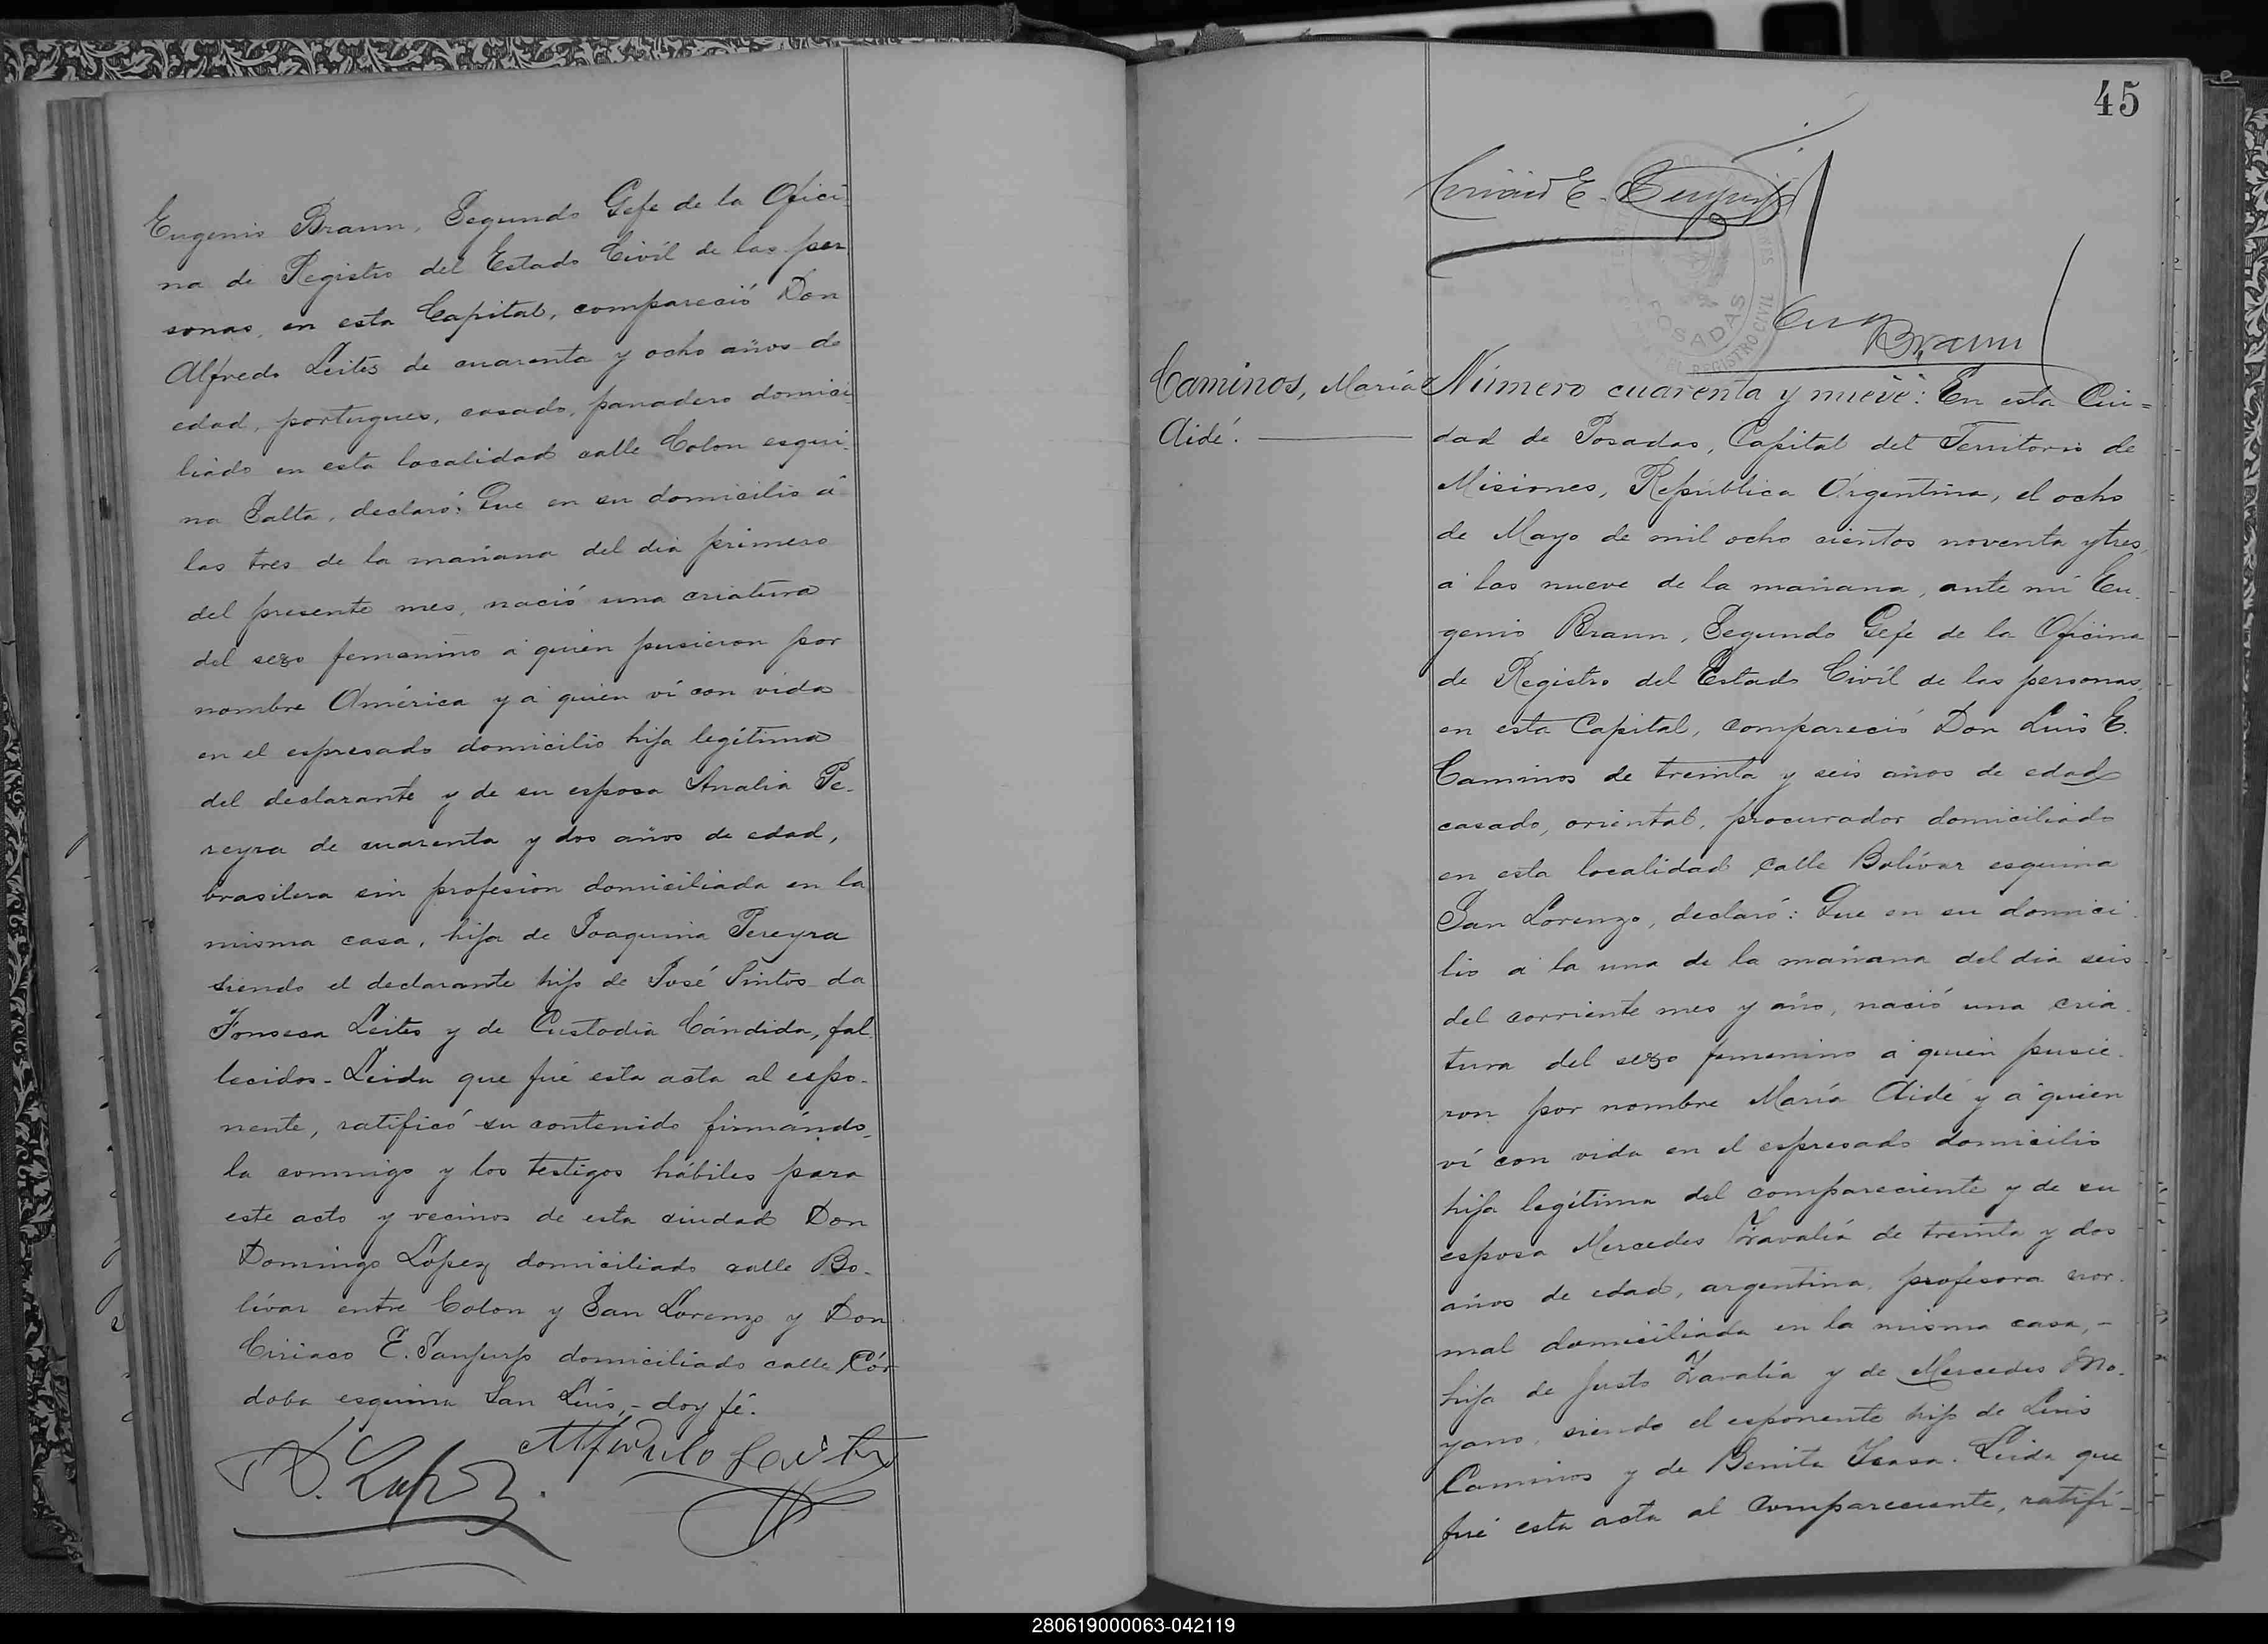 Eugenio Braun, Segundo Gefe de la Ofici-
na de Registro del Estado Civíl de las per
sonas, en esta Capital, compareció Don
Alfredo Leites de cuarenta y ocho años de
edad, portugues, casado, panadero domici-
liado en esta localidad calle Colon esqui-
na Salta, declaró: Que en su domicilio á
las tres de la mañana del dia primero
del presente mes, nació una criatura
del sexo femenino á quien pusieron por
nombre América y á quien ví con vida
en el espresado domicilio hija legítima
del declarante y de su esposa Analia Pe-
reyra de cuarenta y dos años de edad,
brasilera sin profesion domiciliada en la
misma casa, hija de Joaquina Pereyra
siendo el declarante hijo de José Pintos da
Fonseca Leites y de Custodia Cándida, fal
lecidos - Leida que fué esta acta al espo-
nente, ratificó su contenido firmándo-
la conmigo y los testigos hábiles para
este acto y vecinos de esta ciudad Don
Domingo López domiciliado calle Bo-
lívar entre Colon y San Lorenzo y Don
Ciriaco E. Sanjurjo domiciliado calle Cór
doba esquina San Luis, - doy fé.
Alfredo Leites
D. Lopez
45
Ciriaco E. Sanjurjo
POSADAS
REGISTRO CIVIL
Eug Braun
Caminos, María
Aidé.
Número cuarenta y nueve: En esta Ciu=
dad de Posadas, Capital del Territorio de
Misiones, República Argentina, el ocho
de Mayo de mil ocho cientos noventa y tres,
á las nueve de la mañana, ante mí Eu-
genio Braun, Segundo Gefe de la Oficina
de Registro del Estado Civíl de las personas,
en esta Capital, compareció Don Luis E.
Caminos de treinta y seis años de edad
casado, oriental, procurador domiciliado
en esta localidad calle Bolívar esquina
San Lorenzo, declaró: Que en su domici-
lio á la una de la mañana del dia seis
del corriente mes y año, nació una cria-
tura del sexo femenino á quien pusie-
ron por nombre María Aidé y á quien
ví con vida en el espresado domicilio
hija legítima del compareciente y de su
esposa Mercedes Zavalía de treinta y dos
años de edad, argentina, profesora nor-
mal domiciliada en la misma casa, -
hija de Justo Zavalía y de Mercedes Mo-
yano, siendo el esponente hijo de Luis
Caminos y de Benita Isasa. Leida que
fué esta acta al compareciente, ratifi-
280619000063-042119